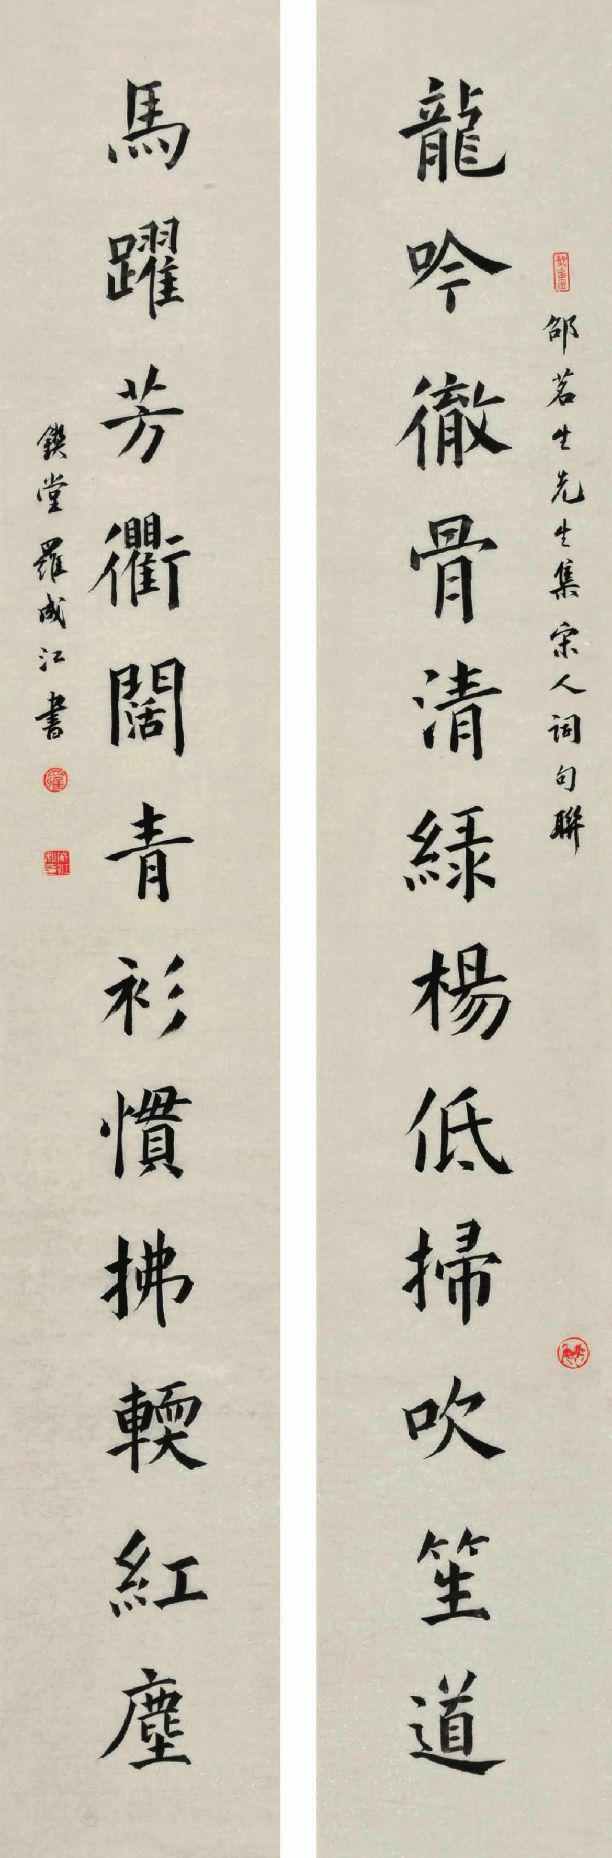 邵茗生先生集宋人詞句聯
龍吟徹骨清綠楊低掃吹笙道
馬躍芳衢闊青衫慣拂輭紅塵
鍥堂羅成江書